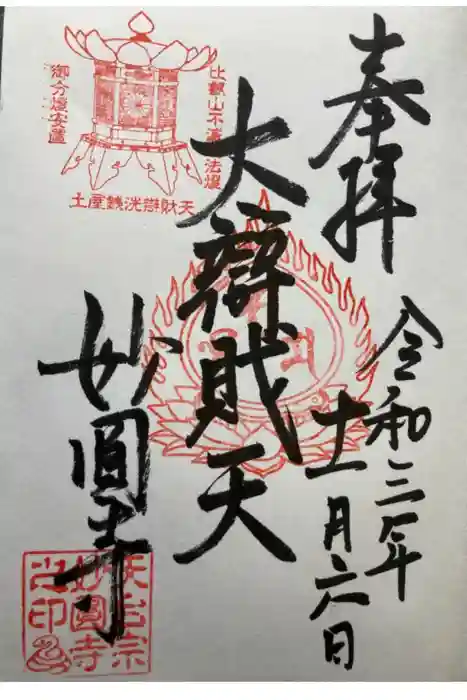 奉拝
令和三年
十一月六日
大辨財天
妙圓寺
比叡山不滅法燈
御分燈安置
土屋銭洗辨財天
天台宗
妙圓寺
之印